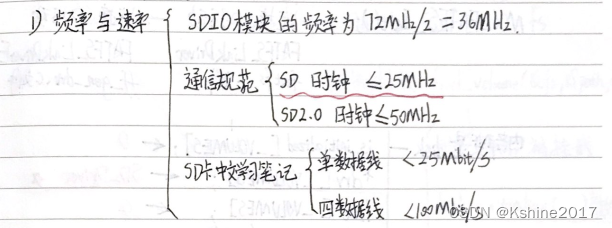 1) 频率与速率
SDIO模块的频率为 72MHz/2 = 36MHz.
通信规范
SD 时钟 ≤25MHz
SD2.0 时钟≤50MHz
SD卡中文学习笔记
单数据线 <25Mbit/S
四数据线 <100Mbit/S
CSDN @Kshine2017